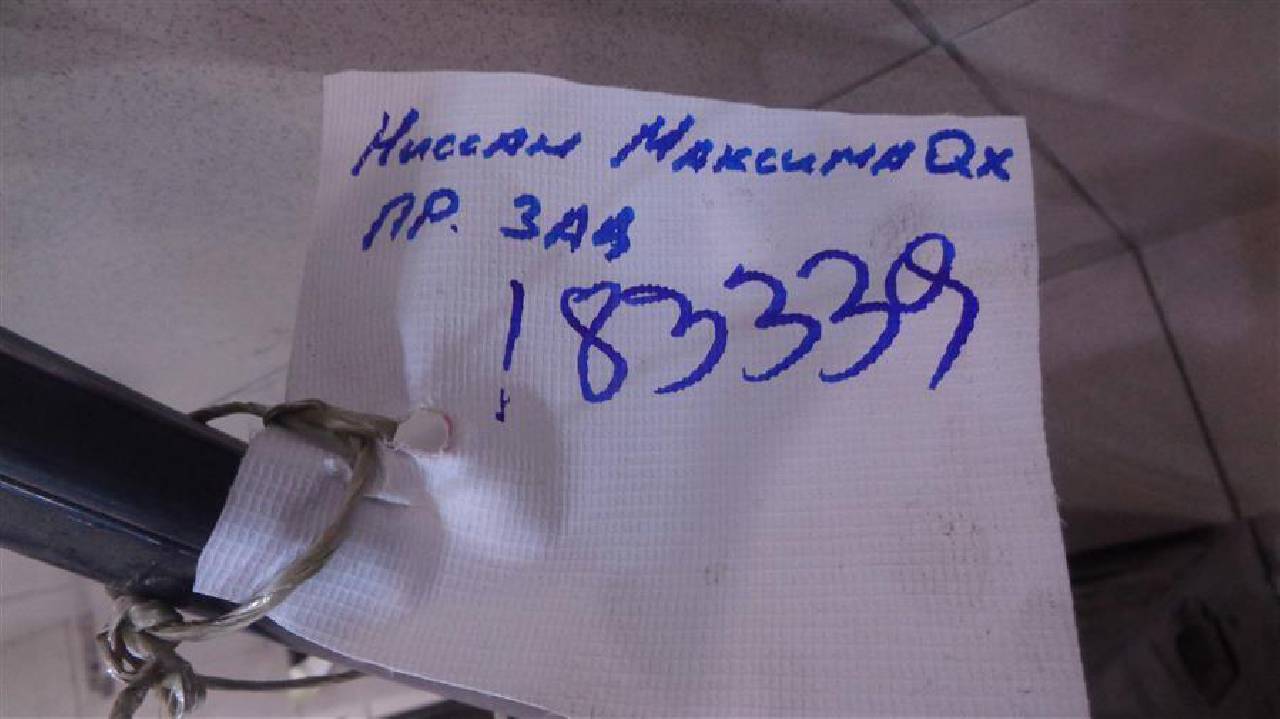 Ниссан Максима Qx
ПР. ЗАД
183339